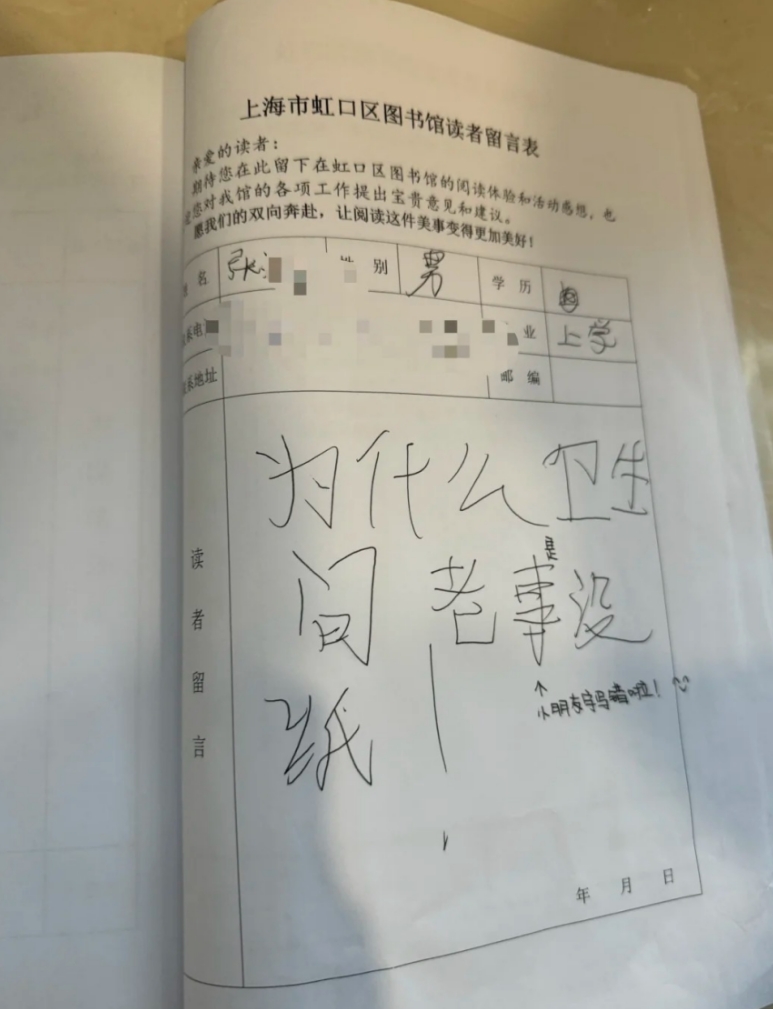 上海市虹口区图书馆读者留言表
亲爱的读者：
期待您在此留下在虹口区图书馆的阅读体验和活动感想，也
您对我馆的各项工作提出宝贵意见和建议。
愿我们的双向奔赴，让阅读这件美事变得更加美好！
名 张 别 男 学历
系电 业 上学
系地址 邮编
读者留言
为什么卫生
间老事没
是
纸！
↑
小朋友字写错啦！
年 月 日